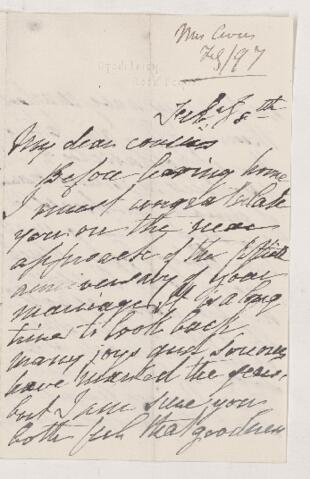 Mrs
Feb/97
Feby 8th
My dear cousins
Before leaving home
I must congratulate
you on the near
approach of the fiftieth
anniversary of your
marriage. It is a long
time to look back
many joys and sorrows
have marked the years,
but I am sure you
both feel that goodness